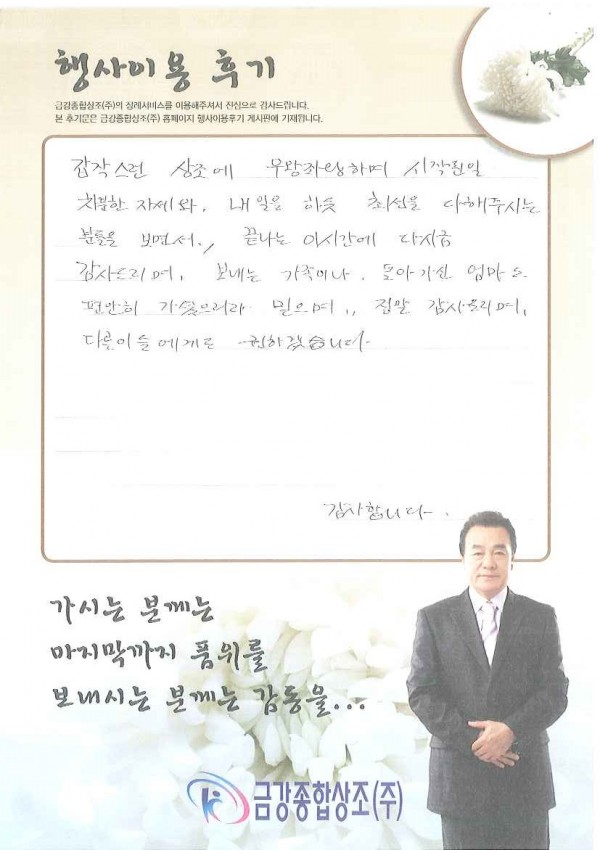 행사이용 후기
금강종합상조(주)의 장례서비스를 이용해주셔서 진심으로 감사드립니다.
본 후기문은 금강종합상조(주) 홈페이지 행사이용후기 게시판에 기재됩니다.
갑작스런 상조에 우왕좌왕하며 시작된일
차분한 자세와, 내 일을 하듯 최선을 다해주시는
분들을 보면서., 끝나는 이시간에 다시금
감사드리며, 보내는 가족이나 돌아가신 엄마도
편안히 가셨으리라 믿으며,, 정말 감사드리며,
다른이들에게도 권하겠습니다
감사합니다.
가시는 분께는
마지막까지 품위를
보내시는 분께는 감동을...
금강종합상조(주)